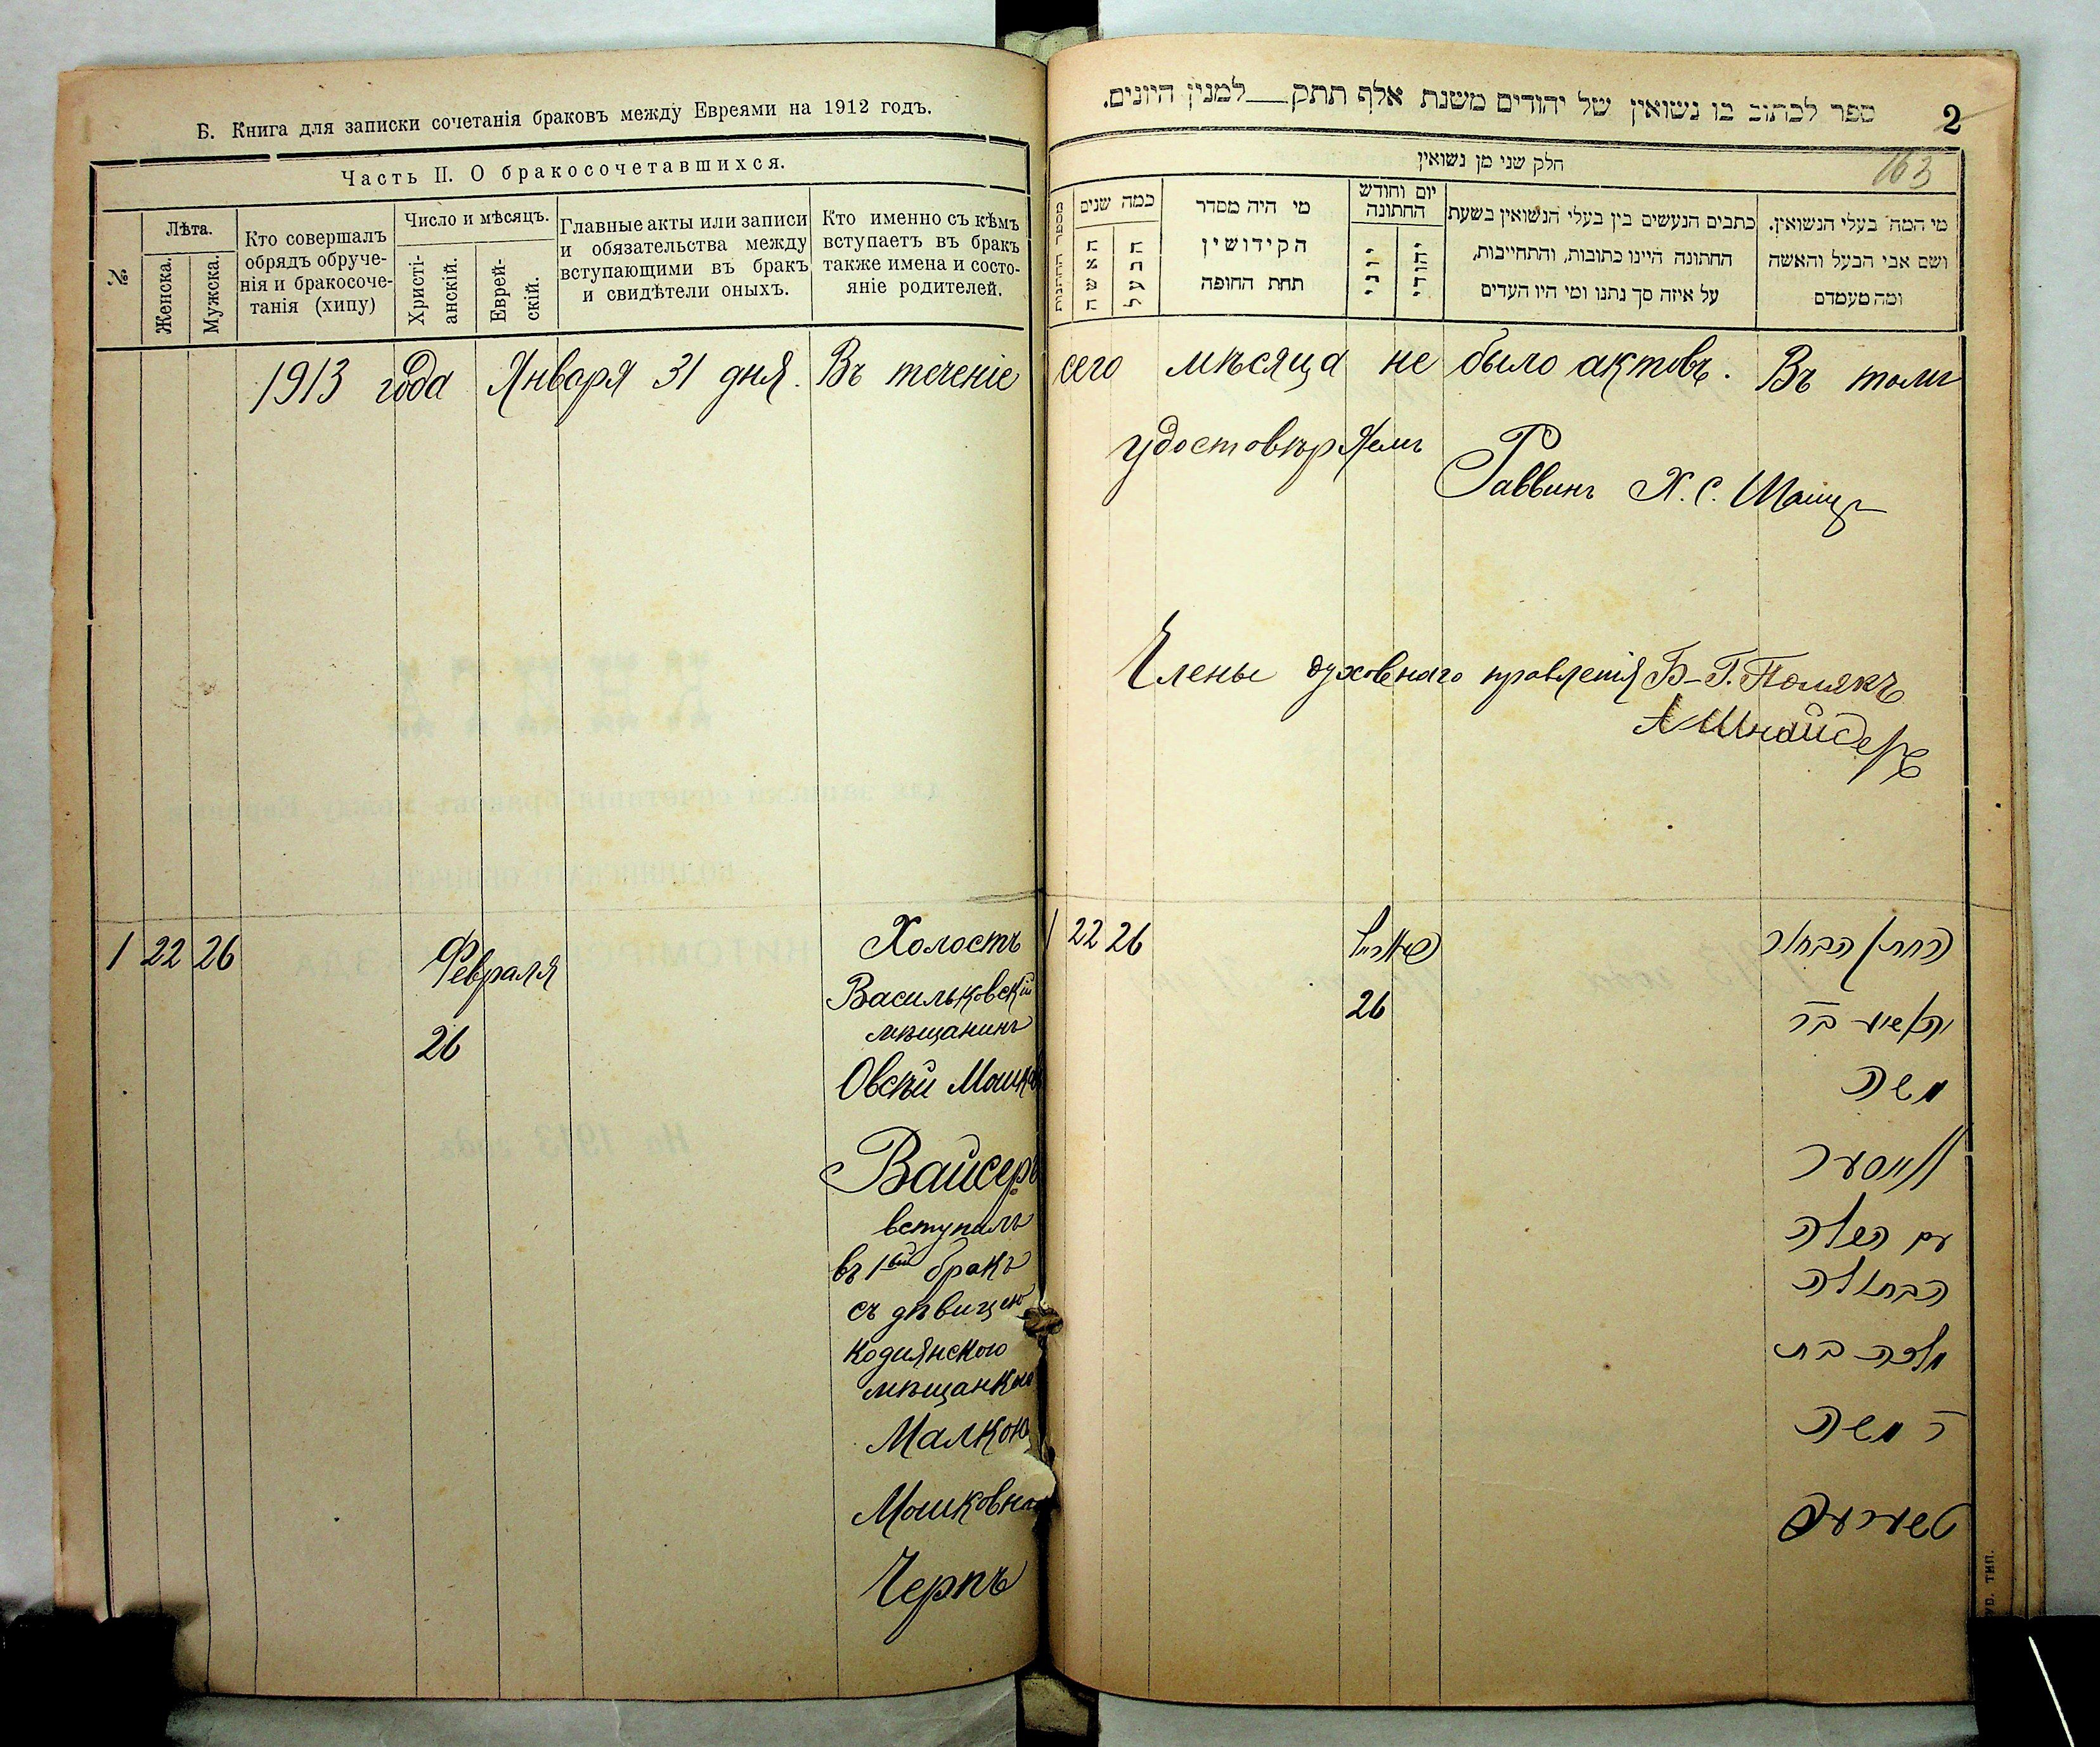 Б. Книга для записки сочетанія браковъ между Евреями на 1912 годъ.
Часть II. О бракосочетавшихся.
№
Лѣта.
Женска.
Мужска.
Кто совершалъ
обрядъ обруче-
нія и бракосоче-
танія (хипу)
Число и мѣсяцъ.
Христі-
анскій.
Еврей-
скій.
Главные акты или записи
и обязательства между
вступающими въ бракъ
и свидѣтели оныхъ.
Кто именно съ кѣмъ
вступаетъ въ бракъ
также имена и состо-
яніе родителей.
1913 года Января 31 дня. Въ теченіе
1 22 26
Февраля
26
Холостъ
Васильковскій
мѣщанинъ
Овсѣй Мошков
Вайсеръ
вступилъ
въ 1ый бракъ
съ дѣвицею
мѣщанкою
Малкою
Мошковною
Черпъ
ספר לכתוב בו נשואין של יהודים משנת אלף תתק למנין היונים.
2
163
חלק שני מן נשואין
מספר החתונות
כמה שנים
האשה
הבעל
מי היה מסדר
הקידושין
תחת החופה
יום וחודש
החתונה
יוני
יהודי
כתבים הנעשים בין בעלי הנשואין בשעת
החתונה היינו כתובות, והתחייבות,
על איזה סך נתנו ומי היו העדים
מי המה בעלי הנשואין.
ושם אבי הבעל והאשה
ומה מעמדם
сего мѣсяца не было актовъ. Въ томъ
удостовѣряемъ
Раввинъ Х. С.
Члены духовнаго правленія Б-Г. Полякъ
А Шнайдеръ
1 22 26
26
החתן הבחור
יהושע בר
משה
ווייסער
עם הכלה
הבתולה
מלכה בת
ר משה
УБ. ТИП.